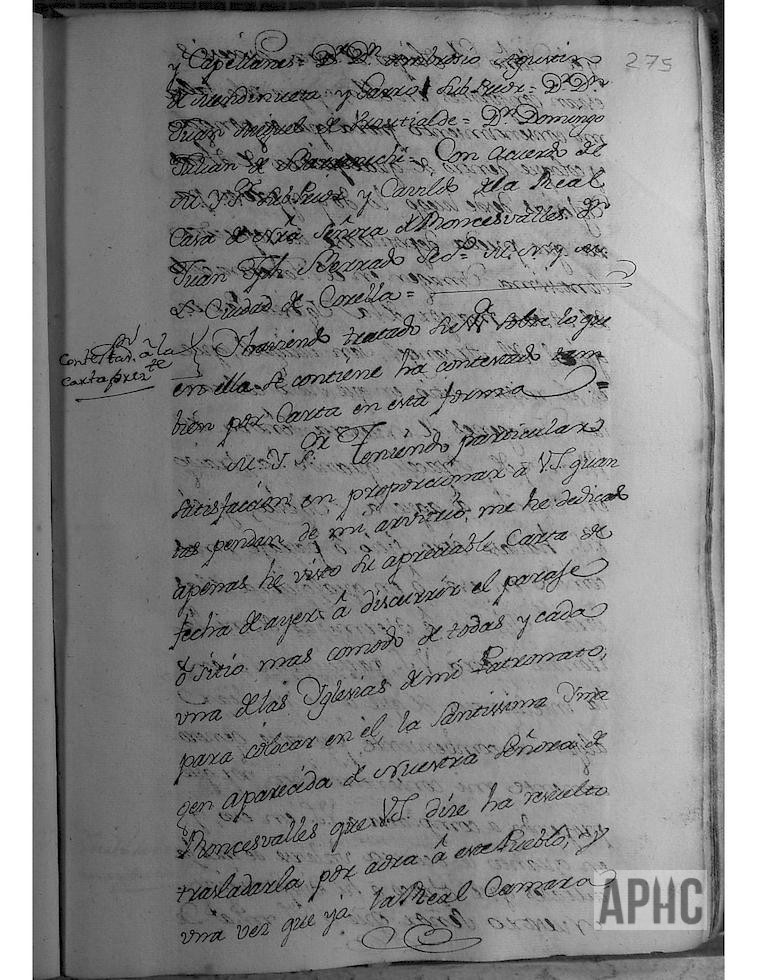 275
y Capellanes = Dr. Dn. Ambrosio Agustin
de Mendinueta y Sarro Sub Prior = Dr. Dn.
Juan Miguel de = Dn. Domingo
Julian de = Con acuerdo del
M. Y. Sr. Sub Prior y Cavildo de la Real
Casa de Nra Señora de Roncesvalles Dn
Juan Jph. Secr.
La Ciudad de Corella =
Contextan. â la
carta prezte.
Y haviendo tratado su Md. sobre lo que
en ella se contiene ha contextado tam
bien por Carta en esta forma =
M. Y. Sr. Teniendo particular
satisfaccion en proporcionar a VS. quan
tas pendan de mi arvitrio, me he dedicado
apenas he visto su apreciable Carta de
fecha de ayer â discurrir el paraje
ô sitio mas comodo de todas y cada
una de las Yglesias de mi Patronato,
para colocar en el, la Santissima Yma
gen aparecida de Nuestra Señora de
Roncesvalles que VS. dize ha resuelto
trasladarla por aora â este Pueblo, y
una vez que yá la Real Camara
APHC